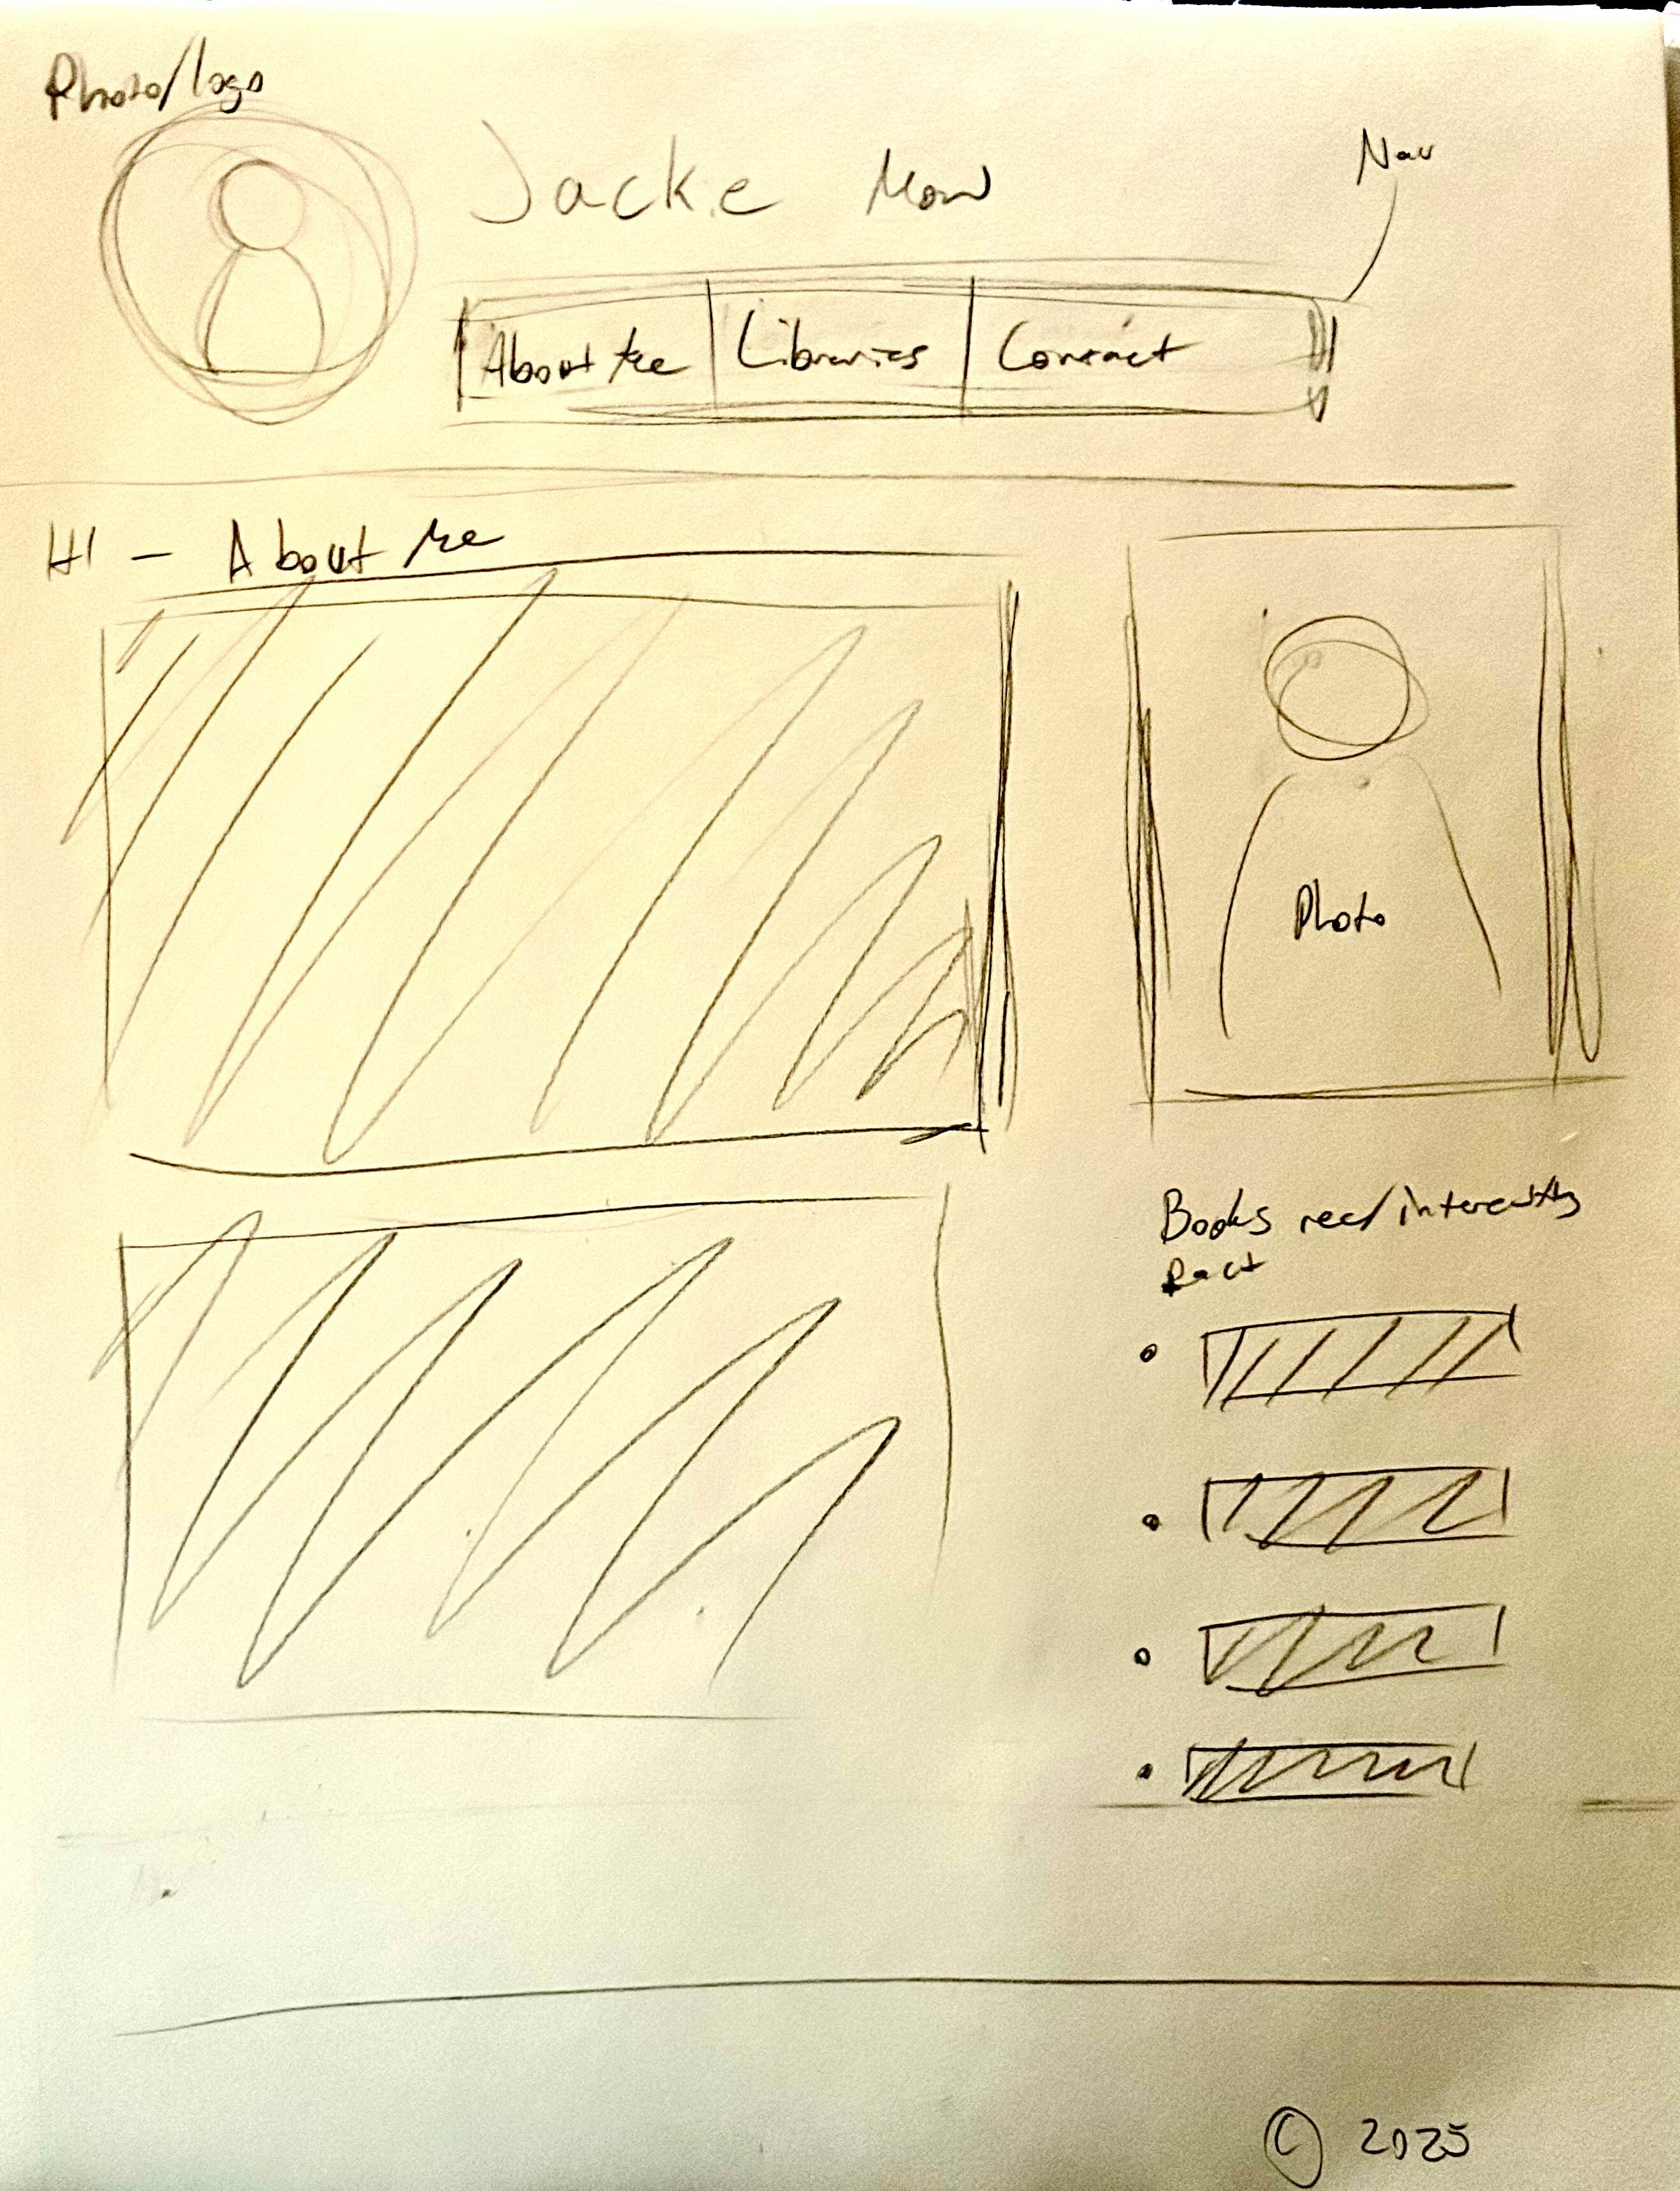 Photo/logo
Jackie
Nav
About Me
Libraries
Contact
H1 - About Me
Photo
Books read/interesting
fact
© 2025